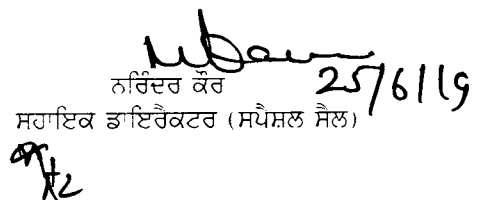 25/6/19
ਨਰਿੰਦਰ ਕੌਰ
ਸਹਾਇਕ ਡਾਇਰੈਕਟਰ (ਸਪੈਸ਼ਲ ਸੈਲ)